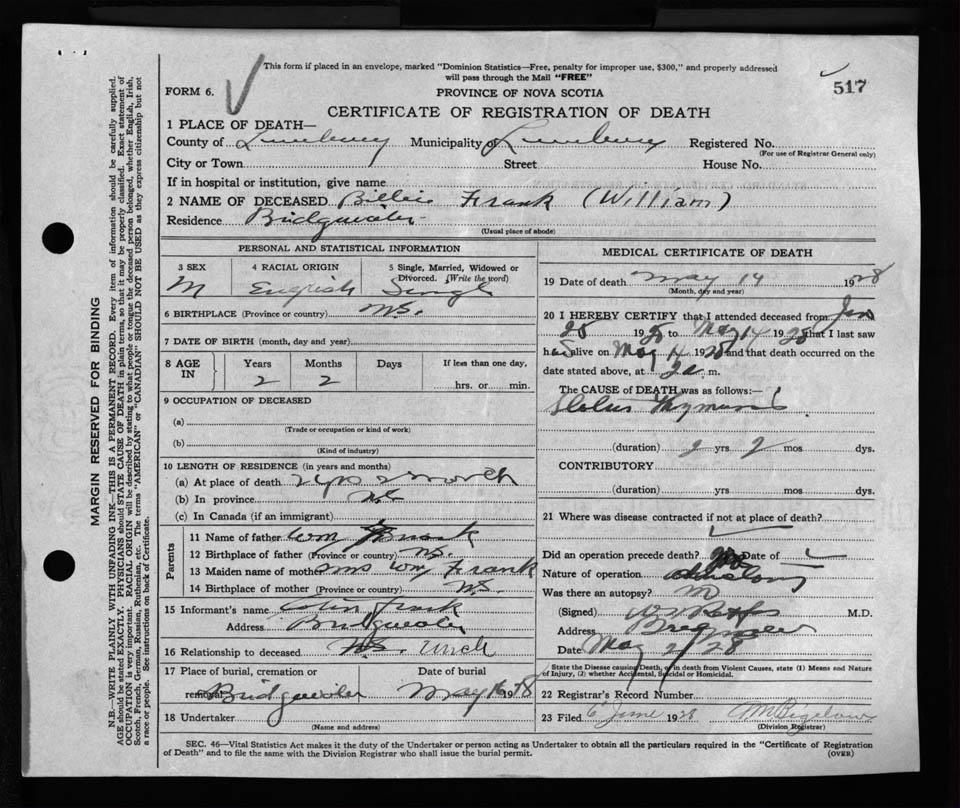 This form if placed in an envelope, marked "Dominion Statistics—Free, penalty for improper use, $300," and properly addressed
will pass through the Mail "FREE"
FORM 6.
PROVINCE OF NOVA SCOTIA
517
CERTIFICATE OF REGISTRATION OF DEATH
1 PLACE OF DEATH—
County of Lunenburg Municipality of Lunenburg Registered No.
(For use of Registrar General only)
City or Town Street House No.
If in hospital or institution, give name
2 NAME OF DECEASED Billie Frank (William)
Residence Bridgewater
(Usual place of abode)
PERSONAL AND STATISTICAL INFORMATION
3 SEX 4 RACIAL ORIGIN 5 Single, Married, Widowed or
Divorced. (Write the word)
M English Single
6 BIRTHPLACE (Province or country) N.S.
7 DATE OF BIRTH (month, day and year)
8 AGE Years Months Days If less than one day,
IN 2 2 hrs. or min.
9 OCCUPATION OF DECEASED
(a)
(Trade or occupation or kind of work)
(b)
(Kind of industry)
10 LENGTH OF RESIDENCE (in years and months)
(a) At place of death 2 yrs 2 month
(b) In province
(c) In Canada (if an immigrant)
Parents
11 Name of father Wm Frank
12 Birthplace of father (Province or country) N.S.
13 Maiden name of mother Mrs Wm Frank
14 Birthplace of mother (Province or country) N.S.
15 Informant's name Frank
Address Bridgewater
16 Relationship to deceased Uncle
17 Place of burial, cremation or Date of burial
removal Bridgewater May 16 1928
18 Undertaker
(Name and address)
MEDICAL CERTIFICATE OF DEATH
19 Date of death May 14 1928
(Month, day and year)
20 I HEREBY CERTIFY that I attended deceased from Jan
28 1928 to May 14 1928 that I last saw
h alive on May 14 1928 and that death occurred on the
date stated above, at 2 a. m.
The CAUSE of DEATH was as follows:—
Status
(duration) 2 yrs 2 mos dys.
CONTRIBUTORY
(duration) yrs. mos. dys.
21 Where was disease contracted if not at place of death?
Did an operation precede death? No Date of
Nature of operation
Was there an autopsy?
(Signed) M.D.
Address
Date May 28
State the Disease causing Death, or in death from Violent Causes, state (1) Means and Nature
of Injury, (2) whether Accidental, Suicidal or Homicidal.
22 Registrar's Record Number
23 Filed 6 June 1928 Bigelow
(Division Registrar)
SEC. 46—Vital Statistics Act makes it the duty of the Undertaker or person acting as Undertaker to obtain all the particulars required in the "Certificate of Registration
of Death" and to file the same with the Division Registrar who shall issue the burial permit.
(OVER)
MARGIN RESERVED FOR BINDING
N.B.—WRITE PLAINLY WITH UNFADING INK—THIS IS A PERMANENT RECORD. Every item of information should be carefully supplied.
AGE should be stated EXACTLY. PHYSICIANS should STATE CAUSE OF DEATH in plain terms, so that it may be properly classified. Exact statement of
OCCUPATION is very important. RACIAL ORIGIN will be described by stating to what people or tongue the deceased person belonged, whether English, Irish,
Scotch, French, German, Russian, Ruthenian, etc. The terms "AMERICAN" or "CANADIAN" SHOULD NOT BE USED as they express citizenship but not
a race or people. See instructions on back of Certificate.